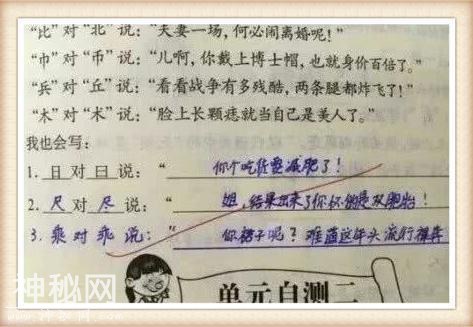 “比”对“北”说：“夫妻一场，何必闹离婚呢！”
“巾”对“币”说：“儿啊，你戴上博士帽，也就身价百倍了。”
“兵”对“丘”说：“看看战争有多残酷，两条腿都炸飞了！”
“木”对“术”说：“脸上长颗痣就当自己是美人了。”
我也会写：
1. 日 对 曰 说：“ 你个吃货要减肥了！
2. 尺 对 尽 说：“ 姐，结果出来了你怀的是双胞胎！
3. 乘 对 乖 说：“ 你裙子呢？难道这年头流行裸奔
单元自测二
神秘网